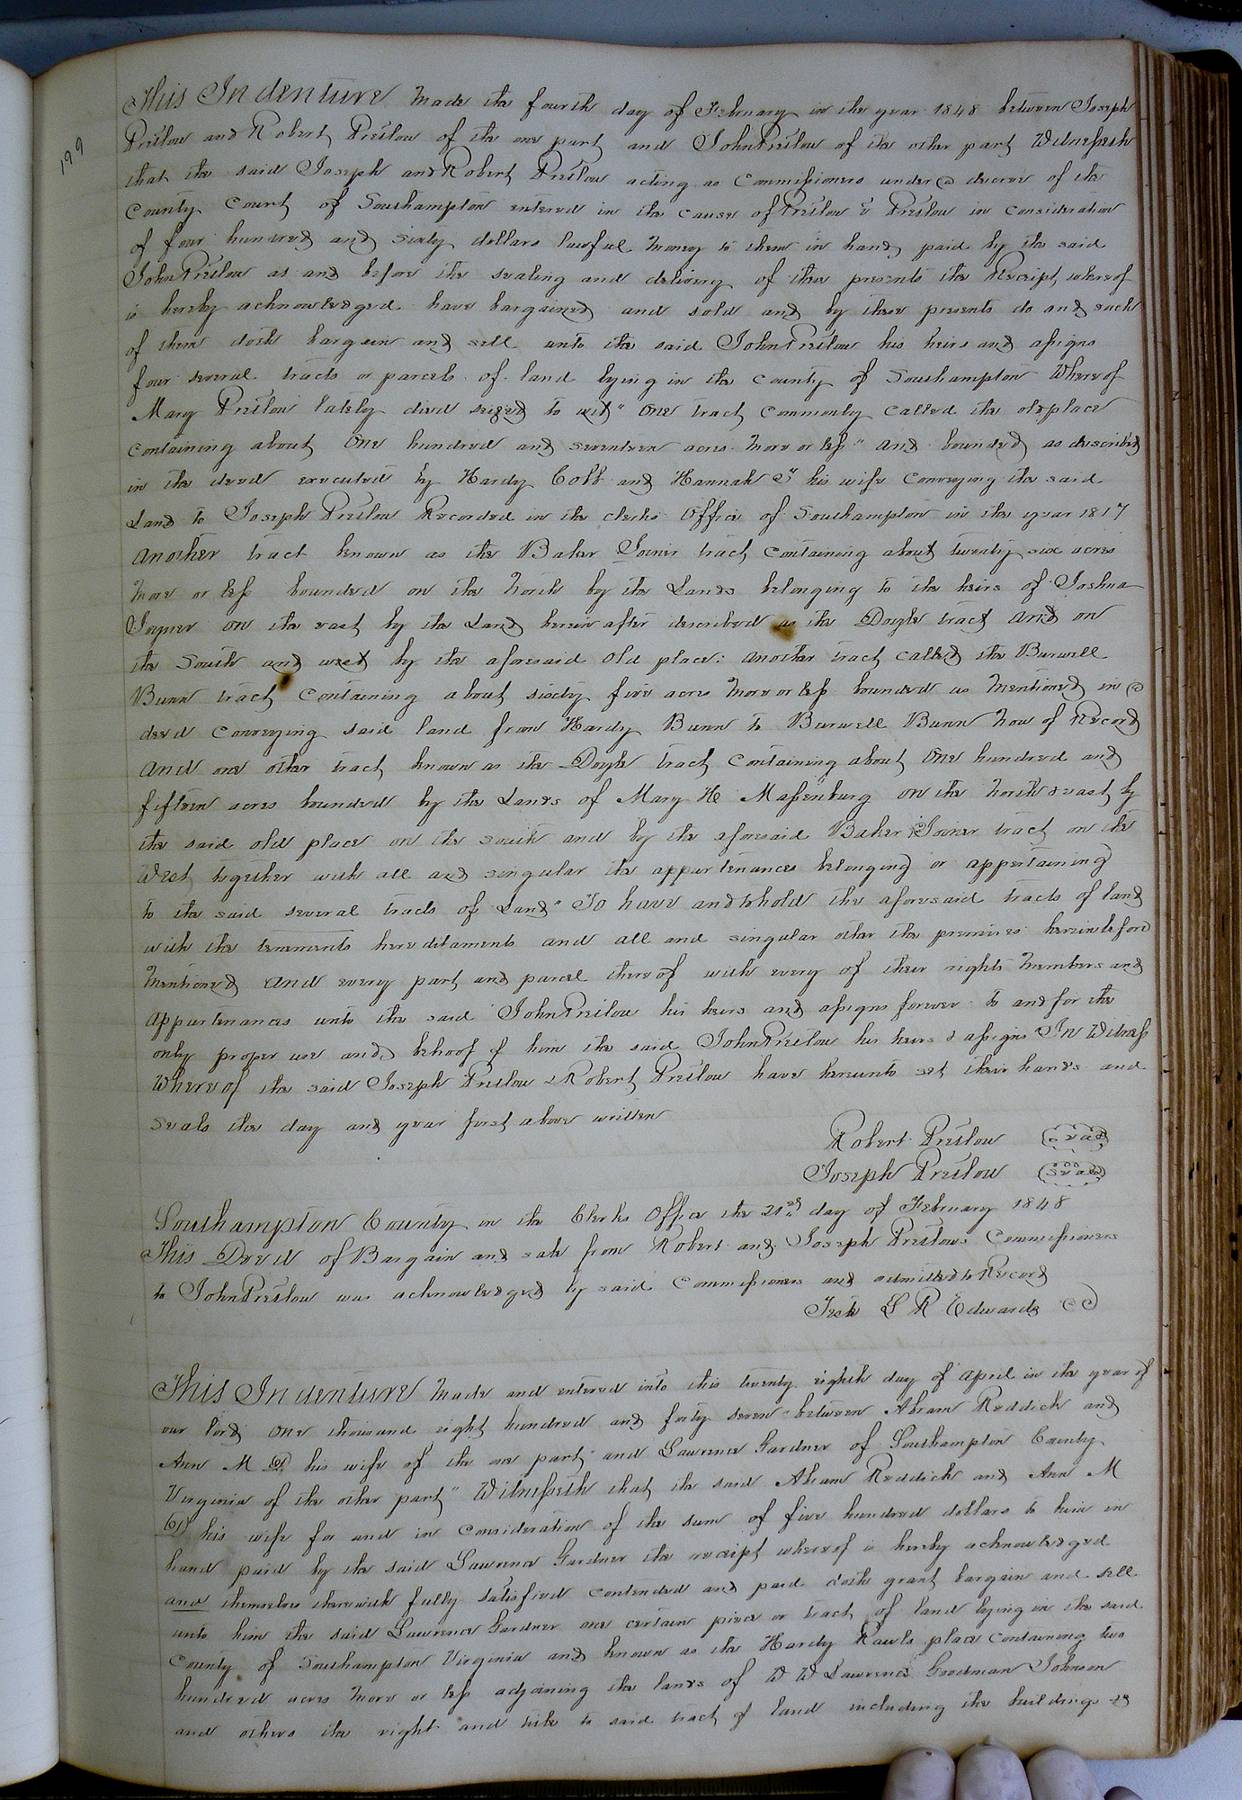 199
This Indenture Made the fourth day of February in the year 1848 between Joseph
Pretlow and Robert Pretlow of the one part and John Pretlow of the other part Witnesseth
that the said Joseph and Robert Pretlow acting as Commissioners under a decree of the
County Court of Southampton entered in the cause of Pretlow v Pretlow in consideration
of four hundred and sixty dollars lawful money to them in hand paid by the said
John Pretlow at and before the sealing and delivery of these presents the Receipt whereof
is hereby acknowledged have bargained and sold and by these presents do and each
of them doth bargain and sell unto the said John Pretlow his heirs and assigns
four several tracts or parcels of land lying in the County of Southampton Whereof
Mary Pretlow lately died seized to wit" One tract commonly called the old place
containing about One hundred and seventeen acres more or less" and bounded as described
in the deed executed by Hardy Cobb and Hannah his wife Conveying the said
Land to Joseph Pretlow Recorded in the clerks Office of Southampton in the year 1817
Another tract known as the Baker Joiner tract containing about twenty six acres
More or less bounded on the North by the Lands belonging to the heirs of Joshua
Joyner on the east by the Land herein after described as the Doyle tract And on
the South and west by the aforesaid old place: another tract called the Burwell
Bunn tract Containing about sixty five acres More or less bounded as Mentioned in a
deed Conveying said land from Hardy Bunn to Burwell Bunn Now of Record
And one other tract known as the Doyle tract Containing about One hundred and
fifteen acres bounded by the Lands of Mary H Massenburg on the North & east by
the said old place on the south and by the aforesaid Baker Joiner tract on the
West together with all and singular the appurtenances belonging or appertaining
to the said several tracts of Land" To have and to hold the aforesaid tracts of land
with the tenements hereditaments and all and singular other the premises hereinbefore
Mentioned And every part and parcel thereof with every of their rights Members and
appurtenances unto the said John Pretlow his heirs and assigns forever to and for the
only proper use and behoof of him the said John Pretlow his heirs & assigns" In Witness
Whereof the said Joseph Pretlow & Robert Pretlow have hereunto set their hands and
Seals the day and year first above written
Robert Pretlow Seal
Joseph Pretlow Seal
Southampton County in the Clerks Office the 21st day of February 1848
This Deed of Bargain and sale from Robert and Joseph Pretlow Commissioners
to John Pretlow was acknowledged by said Commissioners and admitted to Record
Teste L R Edwards CC
This Indenture Made and entered into this twenty eighth day of April in the year of
our lord One thousand eight hundred and forty seven between Abram Reddick and
Ann M his wife of the one part" and Lawrence Gardner of Southampton County
Virginia of the other part" Witnesseth that the said Abram Reddick and Ann M
his wife for and in Consideration of the sum of five hundred dollars to him in
hand paid by the said Lawrence Gardner the receipt whereof is hereby acknowledged
and themselves therewith fully satisfied contended and paid doth grant bargain and sell
unto him the said Lawrence Gardner one certain piece or tract of land lying in the said
County of Southampton Virginia and known as the Hardy Rawls place Containing two
hundred acres More or less adjoining the lands of W W Lawrence Goodman Johnson
and others the right and title to said tract of land including the buildings &